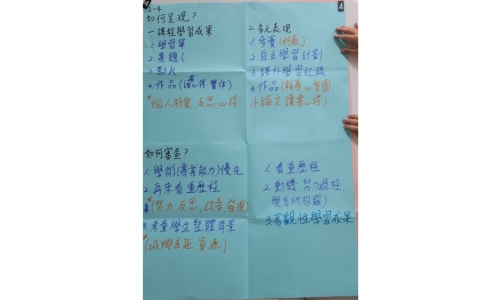 2-4
如何呈現?
一.課程學習成果
1.學習單
2.專題(
3.影片
4.作品(書.得.實作)
*個人特質,反思,心得
二.多元表現
1.參賽(科展)
2.自主學習計劃
3.課外學習紀錄
4.作品(報導,心智圖
小論文,讀書心得)
如何審查?
1.學術(專業能力)優先
2.再來看重歷程
*(努力,反思,改善,發現)
3.考量學生整體背景
*(城鄉差距,資源)
1.看重歷程
2.動機.努力過程,
與系所相關)
3.客觀性學習成果
4